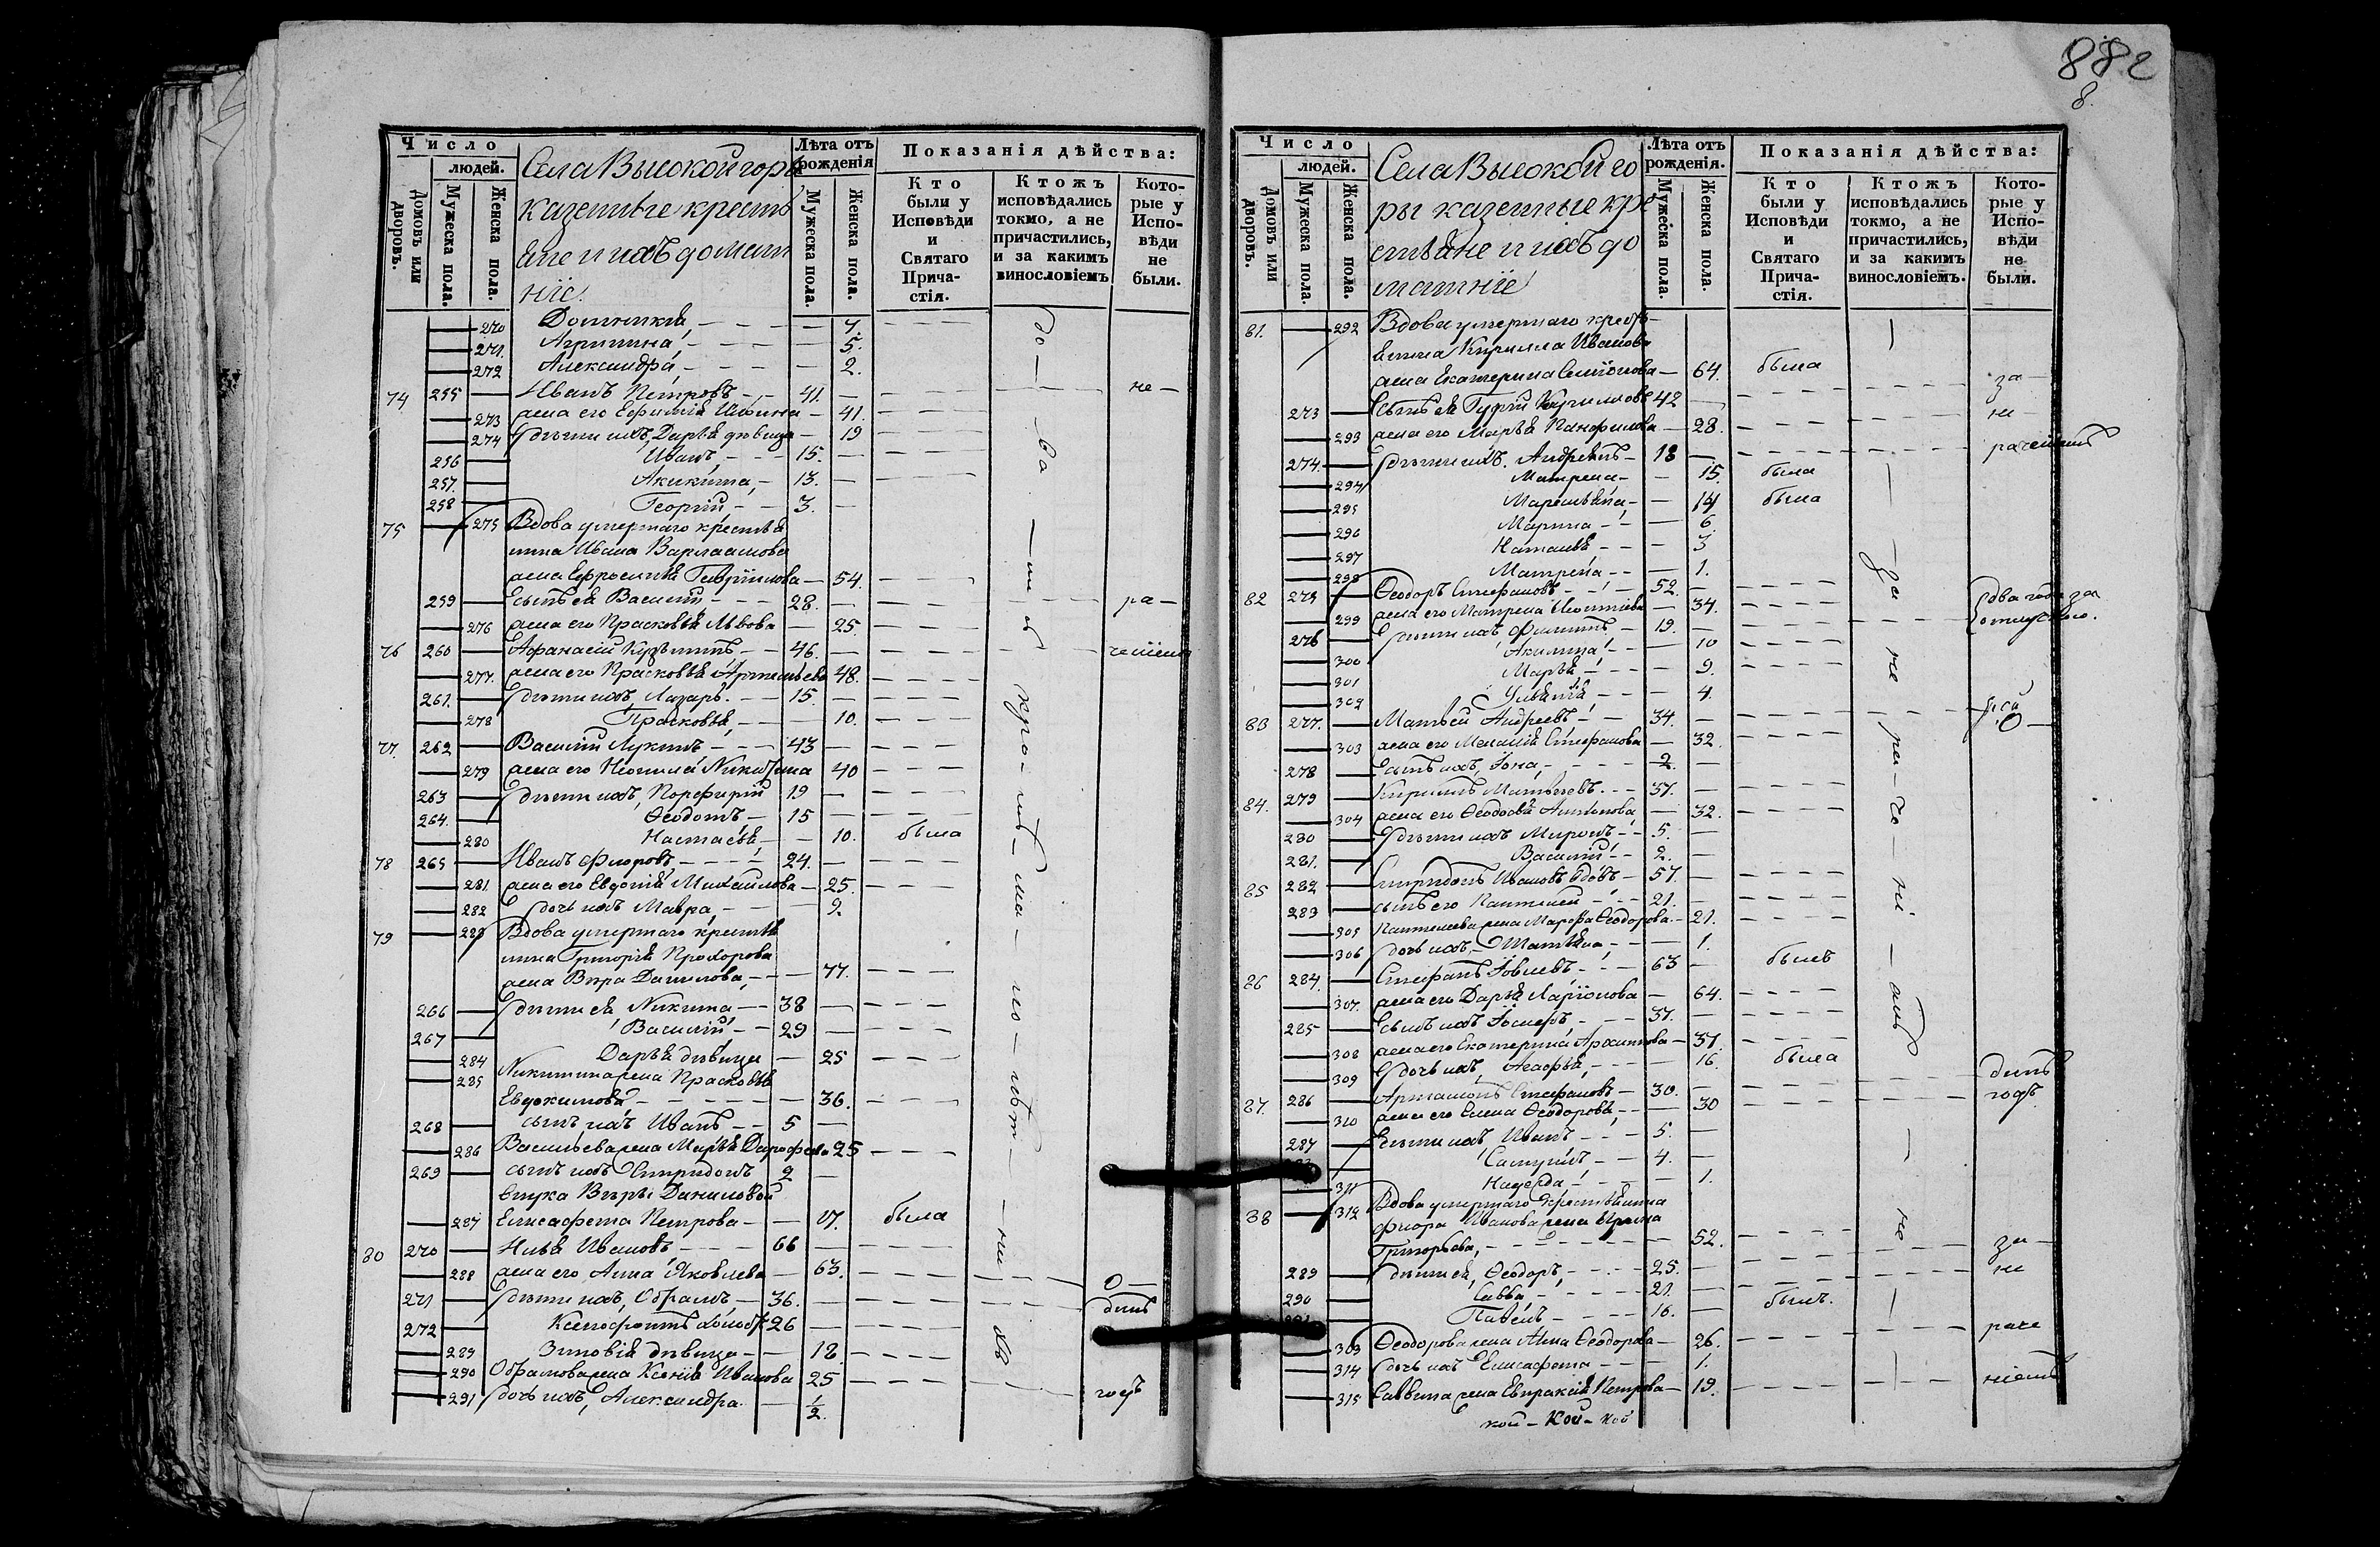 882
8.
Число
людей.
Домовъ или дворовъ.
Мужеска пола.
Женска пола.
Села Высокой горы
казенные кресть
яне и ихъ домаш
ніе.
Лѣта отъ рожденія
Мужеска пола.
Женска пола.
Показанія дѣйства:
Кто были у Исповѣди и Святаго Прича- стія.
Ктожъ исповѣдались токмо, а не причастились, и за какимъ винословіемъ
Кото- рые у Испо- вѣди не были.
270 Домникія 7.
271. Агрипина 5.
272 Александра 2.
74 255 Иванъ Петровъ 41. не
273 жена его 41.
274 дѣти ихъ, Дарья дѣвица 19
256 Иванъ 15.
257. 13.
258 Георгій 3.
75 275 Вдова умершаго крестья
нина Ивана Варлаамова
жена Ефросинья Гаврилова 54.
259 сынъ ея Василій 28. ра
276 жена его Прасковья Львова 25.
76 260 Афанасій 46. ченіемъ
277. жена его Прасковья Артемьева 48.
261. дѣти ихъ Лазарь 15.
278 Прасковья 10.
77. 262 Василій Лукинъ 43
279 жена его Неонила Никитина 40
263 дѣти ихъ, Порфирій 19
264. Ѳеодотъ 15
280 Настасья 10. была
78 265 Иванъ Флоровъ 24.
281. жена его Евдокія Михаилова 25.
282 дочь ихъ Мавра 2.
79 283 Вдова умершаго крестья
нина Григорія Прохорова
жена Вѣра Данилова 77.
266 дѣти ея Никита 38
267 Василій 29
284 Дарья дѣвица 25
285 Никитина жена Прасковья
Евдокимова 36.
268 сынъ ихъ Иванъ 5
286 Васильева жена Марья 25
269 сынъ ихъ Спиридонъ 2
внука Вѣры Даниловой
287 Елисафета Петрова 17. была
80 270 Илья Ивановъ 66
288 жена его Анна Яковлева 63. о
271 дѣти ихъ, Абрамъ 36. динъ
272 Ксенофонтъ холостъ 26
289 Зиновія дѣвица 18
290 Абрамова жена Ксенія Иванова 25
291 дочь ихъ, Александра 1/2. годъ
Число
людей.
Домовъ или дворовъ.
Мужеска пола.
Женска пола.
Села Высокой го
ры казенные кре
стьяне и ихъ до
машніе
Лѣта отъ рожденія.
Мужеска пола.
Женска пола.
Показанія дѣйства:
Кто были у Исповѣди и Святаго Прича- стія.
Ктожъ исповѣдались токмо, а не причастились, и за какимъ винословіемъ.
Кото- рые у Испо- вѣди не были.
81. 292 Вдова умершаго кресть
янина Кирилла Иванова
жена Екатерина Семіонова 64. была за
273 сынъ ея Гурій Кирилловъ 42 не
293 жена его Марья Панфилова 28.
274. дѣти ихъ. Андреянъ 18 раченіемъ
294 Матрена 15. была
295 14 была
296 Марина 6
297 Наталья 3
298 Матрена 1.
82 275 Ѳеодоръ Стефановъ 52. два года за
299 жена его Матрена 34. отлучкою.
276 дѣти ихъ Филиппъ 19.
300 Акилина 10
301 Марья 9.
302 Ульянія 4.
83 277. Матвей Андреевъ 34. О
303 жена его Меланія Стефанова 32.
278 сынъ ихъ, Іона 2.
84. 279 Кириллъ Матвеевъ 37.
304 жена его Ѳеодосья Антонова 32.
280 дѣти ихъ Миронъ 5.
281. Василій 2.
85 282 Спиридонъ Ивановъ вдовъ 57.
283 сынъ его Пантелей 21.
305 Пантелеева жена Марфа Ѳеодорова 21.
306 дочь ихъ, Татьяна 1.
86 284. Стефанъ Іовлевъ 63 былъ
307. жена его Дарья Ларіонова 64.
285 сынъ ихъ Іосифъ 37.
308 жена его Екатерина Архиппова 37.
309 дочь ихъ, Агафья 16. была динъ
87. 286 Артамонъ Стефановъ 30. годъ
310 жена его Елена Ѳеодорова 30
287 дѣти ихъ Иванъ 5.
Самуилъ 4.
311 Надежда 1.
88 312 Вдова умершаго крестьянина
Флора Иванова жена Ирина
Григорьева 52. за
289 дѣти ея, Ѳеодоръ 25. не
290 Савва 21.
Павелъ 16. былъ.
313 Ѳеодорова жена Анна Ѳеодорова 26. раче
314 дочь ихъ Елисафета 1.
315 Саввина жена Евпраксія Петрова 19. ніемъ
кой - кой - кой